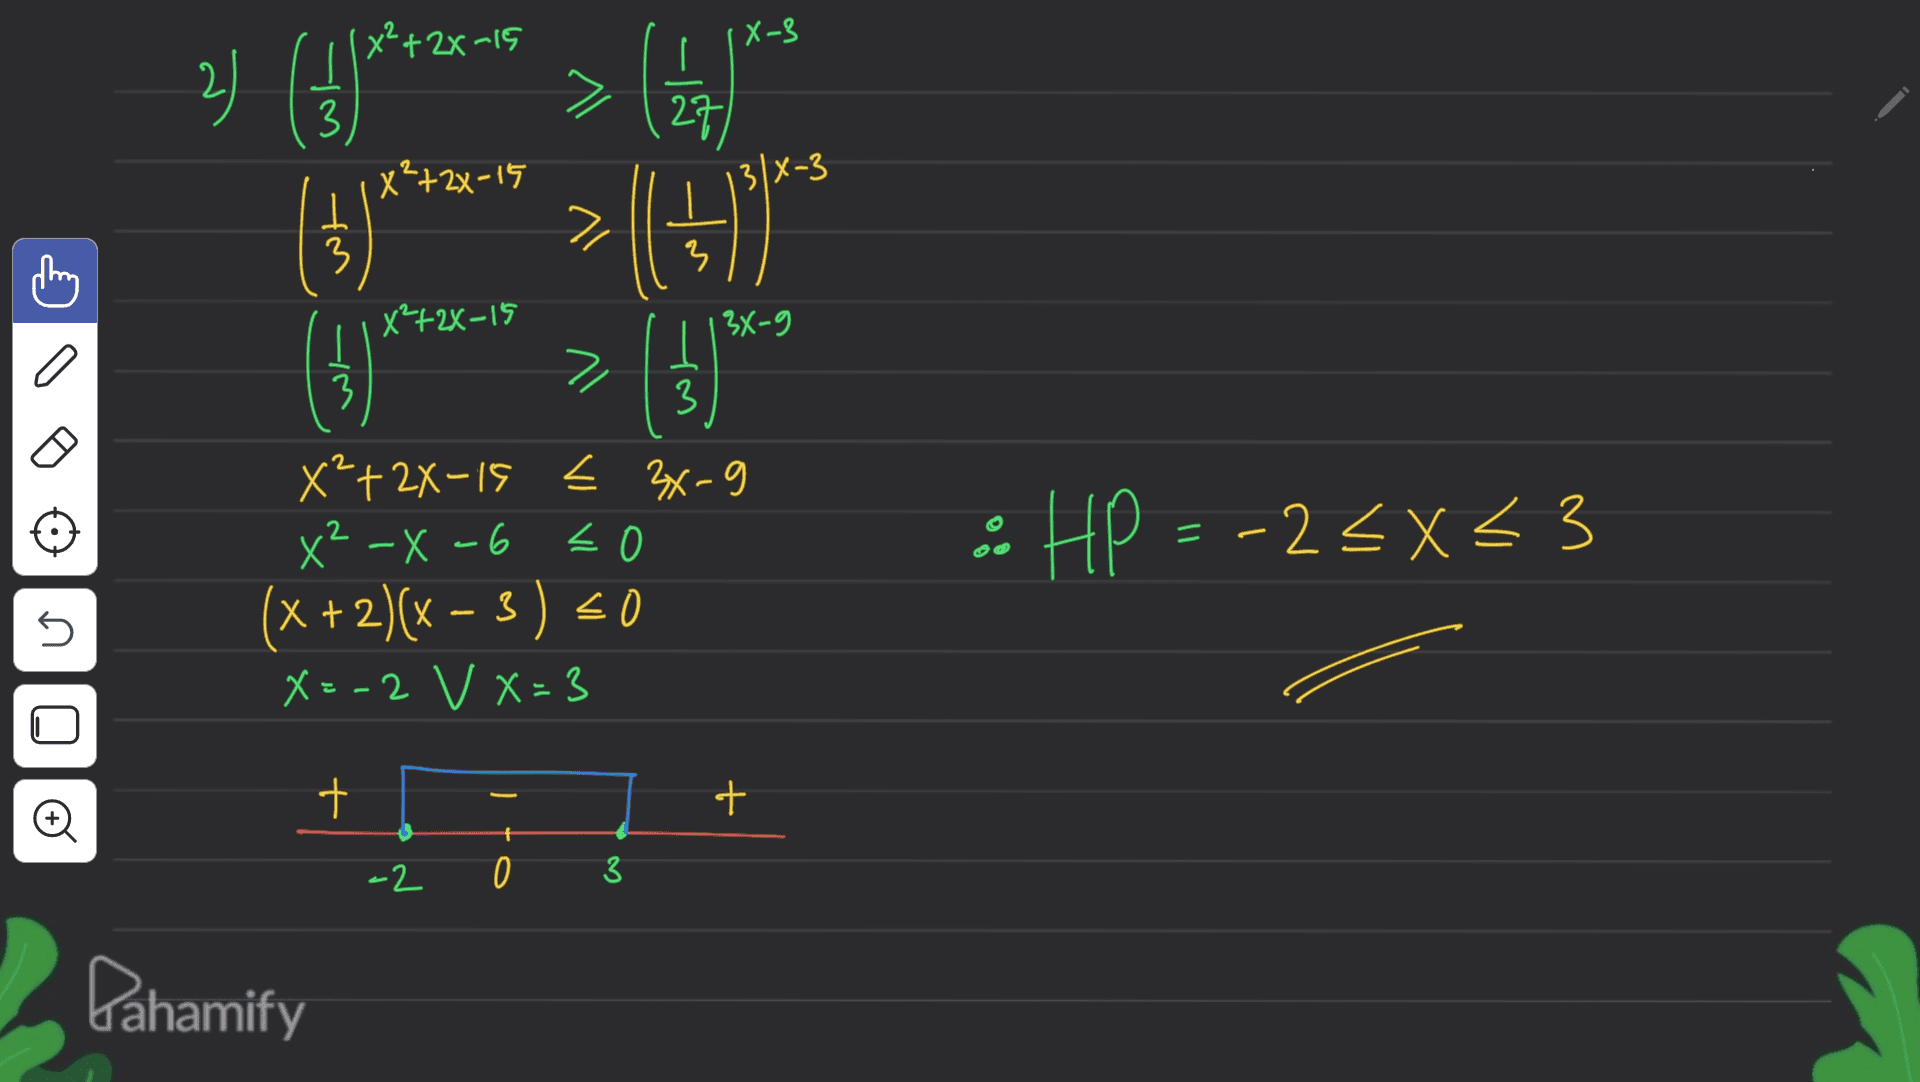 2) (1/3)^(x²+2x-15) ⩾ (1/27)^(x-3)
(1/3)^(x²+2x-15) ⩾ ((1/3)^3)^(x-3)
(1/3)^(x²+2x-15) ⩾ (1/3)^(3x-9)
x²+2x-15 ≤ 3x-9
x²-x-6 ≤ 0
(x+2)(x-3) ≤ 0
x=-2 V x=3
+ - +
-2 0 3
∴ HP = -2 ≤ x ≤ 3
Pahamify